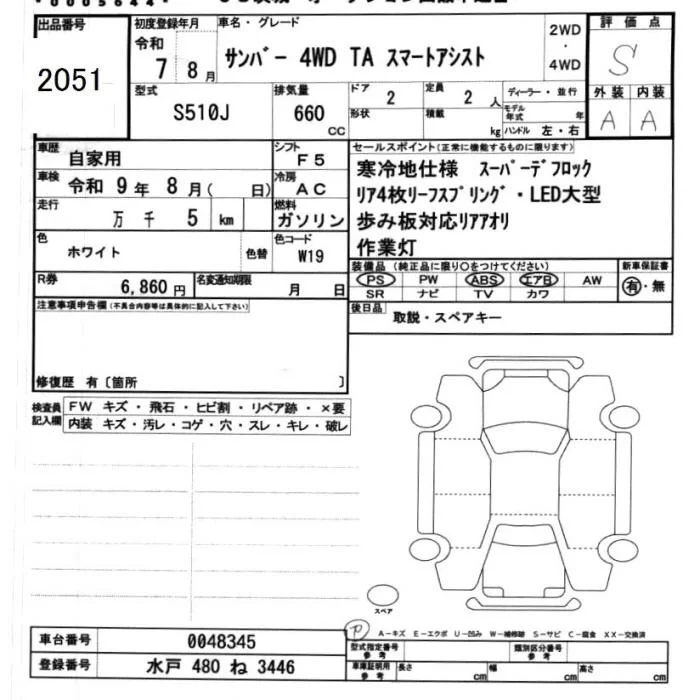 *0005644*
出品番号 初度登録年月 車名・グレード 2WD 評価点
2051 令和 7 8 月 サンバー 4WD TA スマートアシスト ・ 4WD S
型式 排気量 ドア 定員 ディーラー・並行 外装 内装
S510J 660 CC 2 2 人 モデル年式 年 A A
形状 積載 kg ハンドル 左・右
車歴 自家用 シフト F5 セールスポイント(正常に機能するものに限ります)
車検 令和 9 年 8 月( 日) 冷房 AC 寒冷地仕様 スーパーデフロック
走行 万 千 5 km 燃料 ガソリン リア4枚リーフスプリング・LED大型
歩み板対応リアアオリ
色 ホワイト 色替 色コード W19 作業灯
R券 6,860円 名変通知期限 月 日 装備品(純正品に限り○をつけてください) 新車保証書
PS PW ABS エアB AW 有・無
SR ナビ TV カワ
注意事項申告欄(不具合内容等は具体的に記入して下さい) 後日品 取説・スペアキー
修復歴 有〔箇所 〕
検査員記入欄 FW キズ・飛石・ヒビ割・リペア跡・×要
内装 キズ・汚レ・コゲ・穴・スレ・キレ・破レ
スペア
P A-キズ E-エクボ U-凹み W-補修跡 S-サビ C-腐食 XX-交換済
車台番号 0048345 型式指定番号 参考 類別区分番号 参考
登録番号 水戸 480 ね 3446 車庫証明用 参考 長さ cm 幅 cm 高さ cm